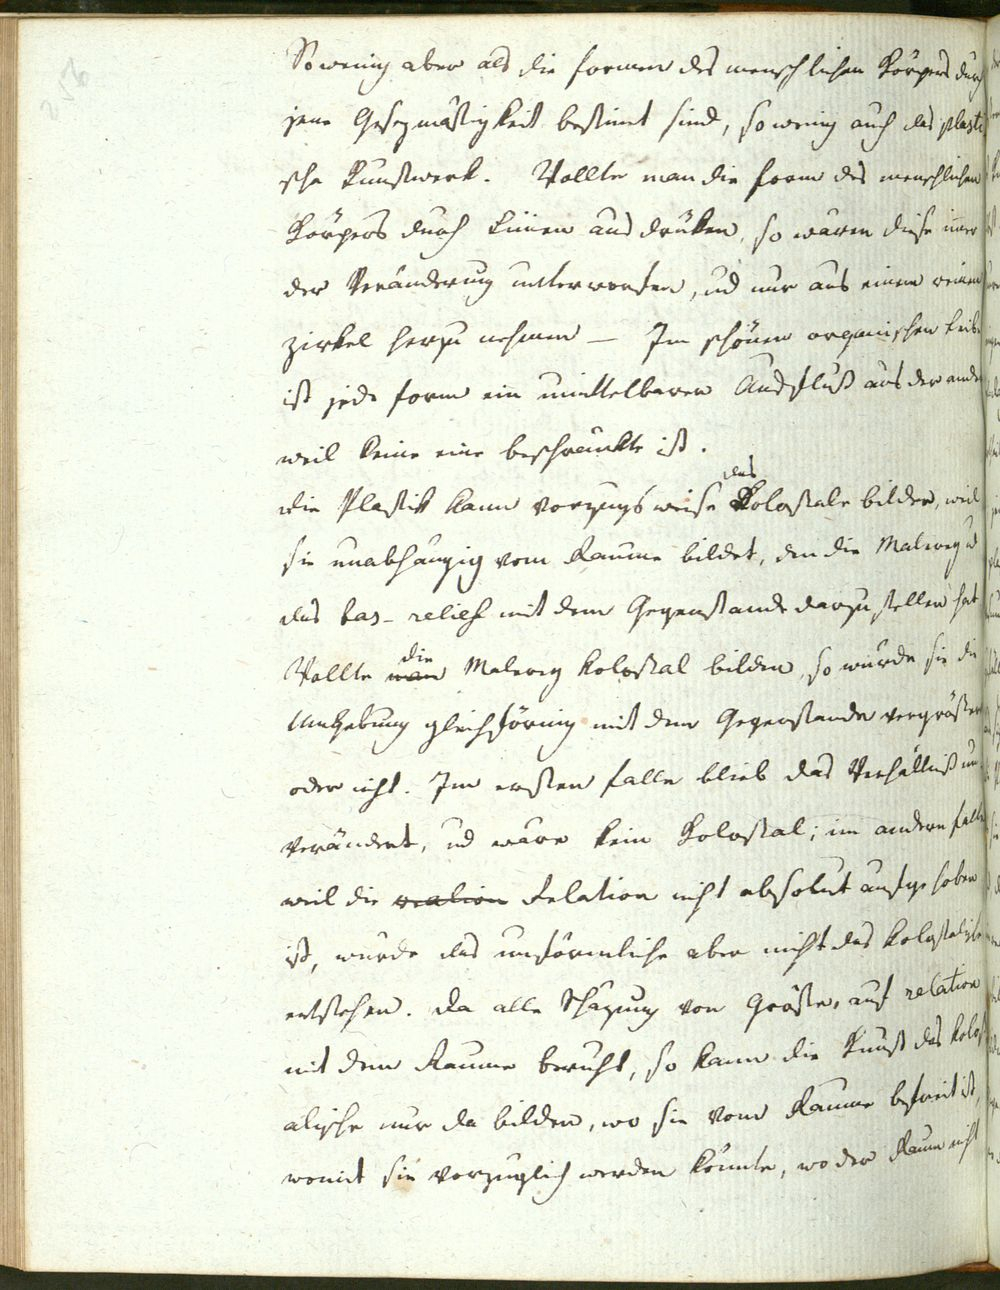 256
So wenig aber als die formen des menschlichen Körpers durch
jene Gesezmäßigkeit bestimt sind, so wenig auch das plasti
sche Kunstwerk. Wollte man die form des menschlichen
Körpers durch Linien ausdrüken, so wären diese imer
der Veränderung unterworfen, und nur aus einem reinen
Zirkel herzu nehmen — Im schönen organischen Leibe
ist jede form ein unmittelbarer Ausfluß aus der andern
weil keine eine beschränkte ist.
die Plastik kann vorzugsweise das Kolossale bilden, weil
sie unabhängig vom Raume bildet, den die Malerey u
das bas-relief mit dem Gegenstande darzustellen hat
Wollte die Malerey kolossal bilden, so würde sie die
Umgebung gleichförmig mit dem Gegenstande vergrößern
oder nicht. Im ersten falle blieb das Verhältniß un
verändert, und wäre kein Kolossal; im andern falle
weil die relation Relation nicht absolut aufgehoben
ist, würde das unförmliche aber nicht das kolossalische
entstehen. da alle Schäzung von Größe, auf relation
mit dem Raume beruht, so kann die Kunst das koloss
alische nur da bilden, wo sie vom Raume befreit ist,
womit sie vorzüglich werden könnte, wo der Raum nicht